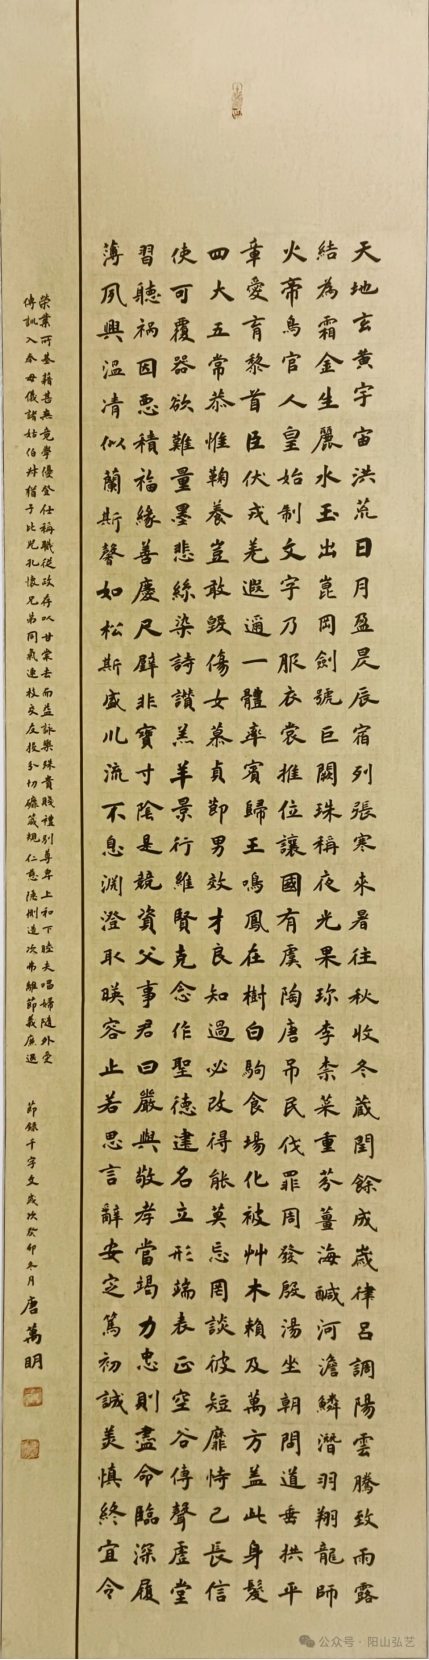 天地玄黃宇宙洪荒日月盈昃辰宿列張寒來暑往秋收冬蔵閏餘成歲律呂調陽雲騰致雨露
結為霜金生麗水玉出崑岡劍號巨闕珠稱夜光果珍李柰菜重芬薑海鹹河澹鱗潛羽翔龍師
火帝鳥官人皇始制文字乃服衣裳推位讓國有虞陶唐吊民伐罪周發殷湯坐朝問道垂拱平
章愛育黎首臣伏戎羌遐邇一體率賓歸王鳴鳳在樹白駒食場化被艸木賴及萬方蓋此身髮
四大五常恭惟鞠養豈敢毀傷女慕貞節男效才良知過必改得能莫忘罔談彼短靡恃己長信
使可覆器欲難量墨悲絲染詩讃羔羊景行維賢克念作聖德建名立形端表正空谷傳聲虛堂
習聽禍因惡積福緣善慶尺璧非寶寸陰是競資父事君曰嚴與敬孝當竭力忠則盡命臨深履
薄夙興溫凊似蘭斯馨如松斯盛川流不息淵澄取暎容止若思言辭安定篤初誠美慎終宜令
榮業所基藉甚無竟學優登仕稱職從政存以甘棠去而益詠樂殊貴賤禮別尊卑上和下睦夫唱婦隨外受
傅訓入奉母儀諸姑伯叔猶子比兒孔懷兄弟同氣連枝交友投分切磨箴規仁慈隱惻造次弗離節義廉退
節錄千字文歲次癸卯冬月唐萬明
公众号·阳山弘艺